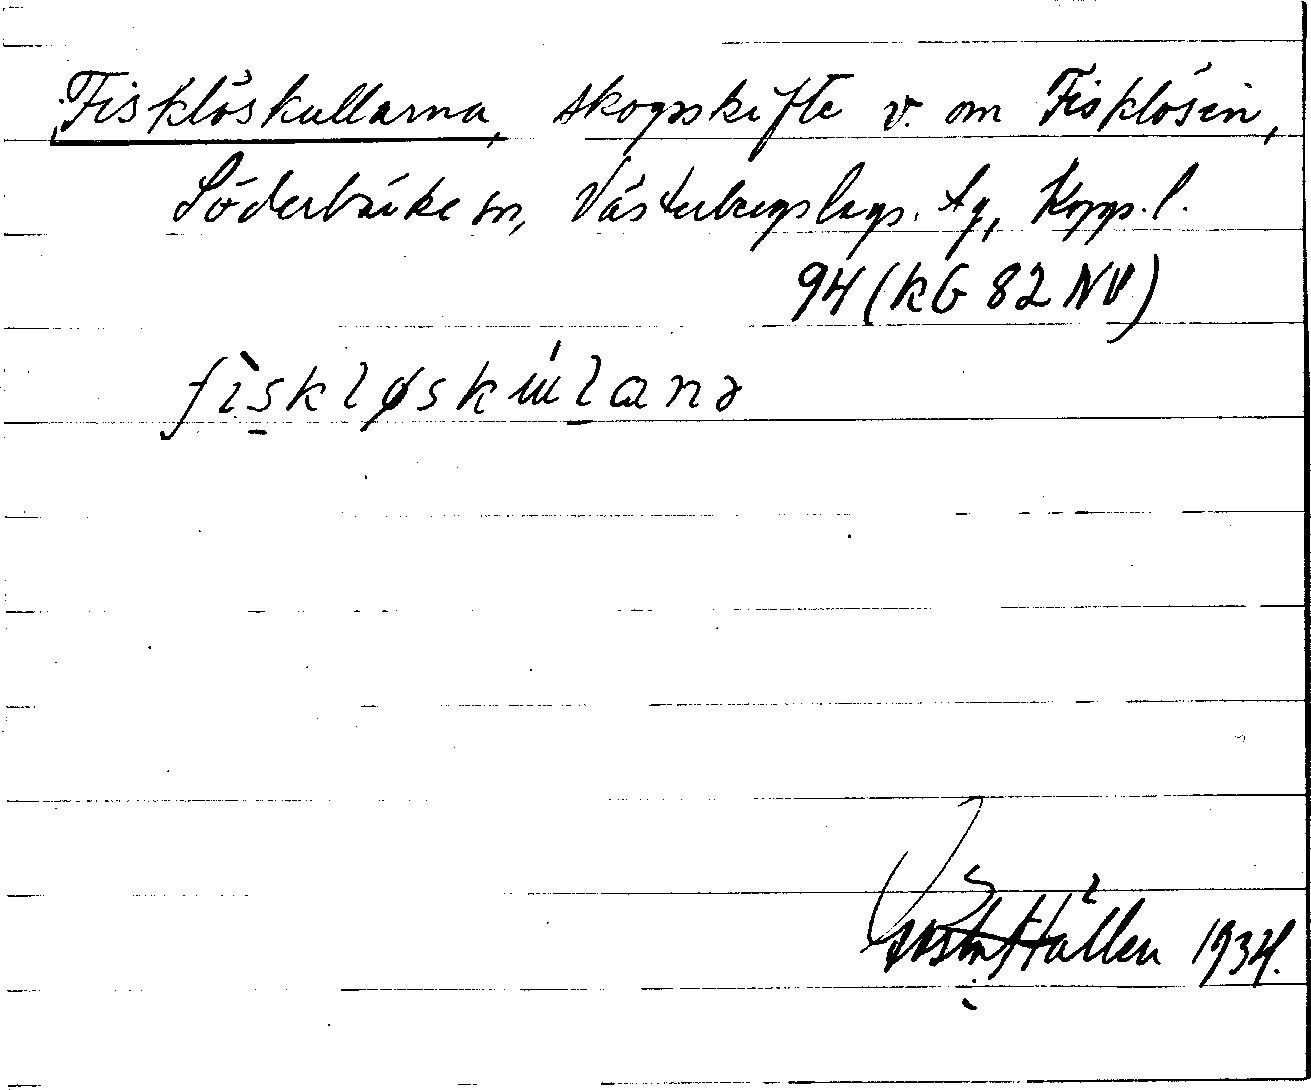 Fisklöskullarna, skogsskifte v. om Fisklösen,
Söderbärke sn, Västerbergslags. tg, Kopps. l.
94 (KG 82 NV)
fìskløskɯ́lanə
Hållen 1934.